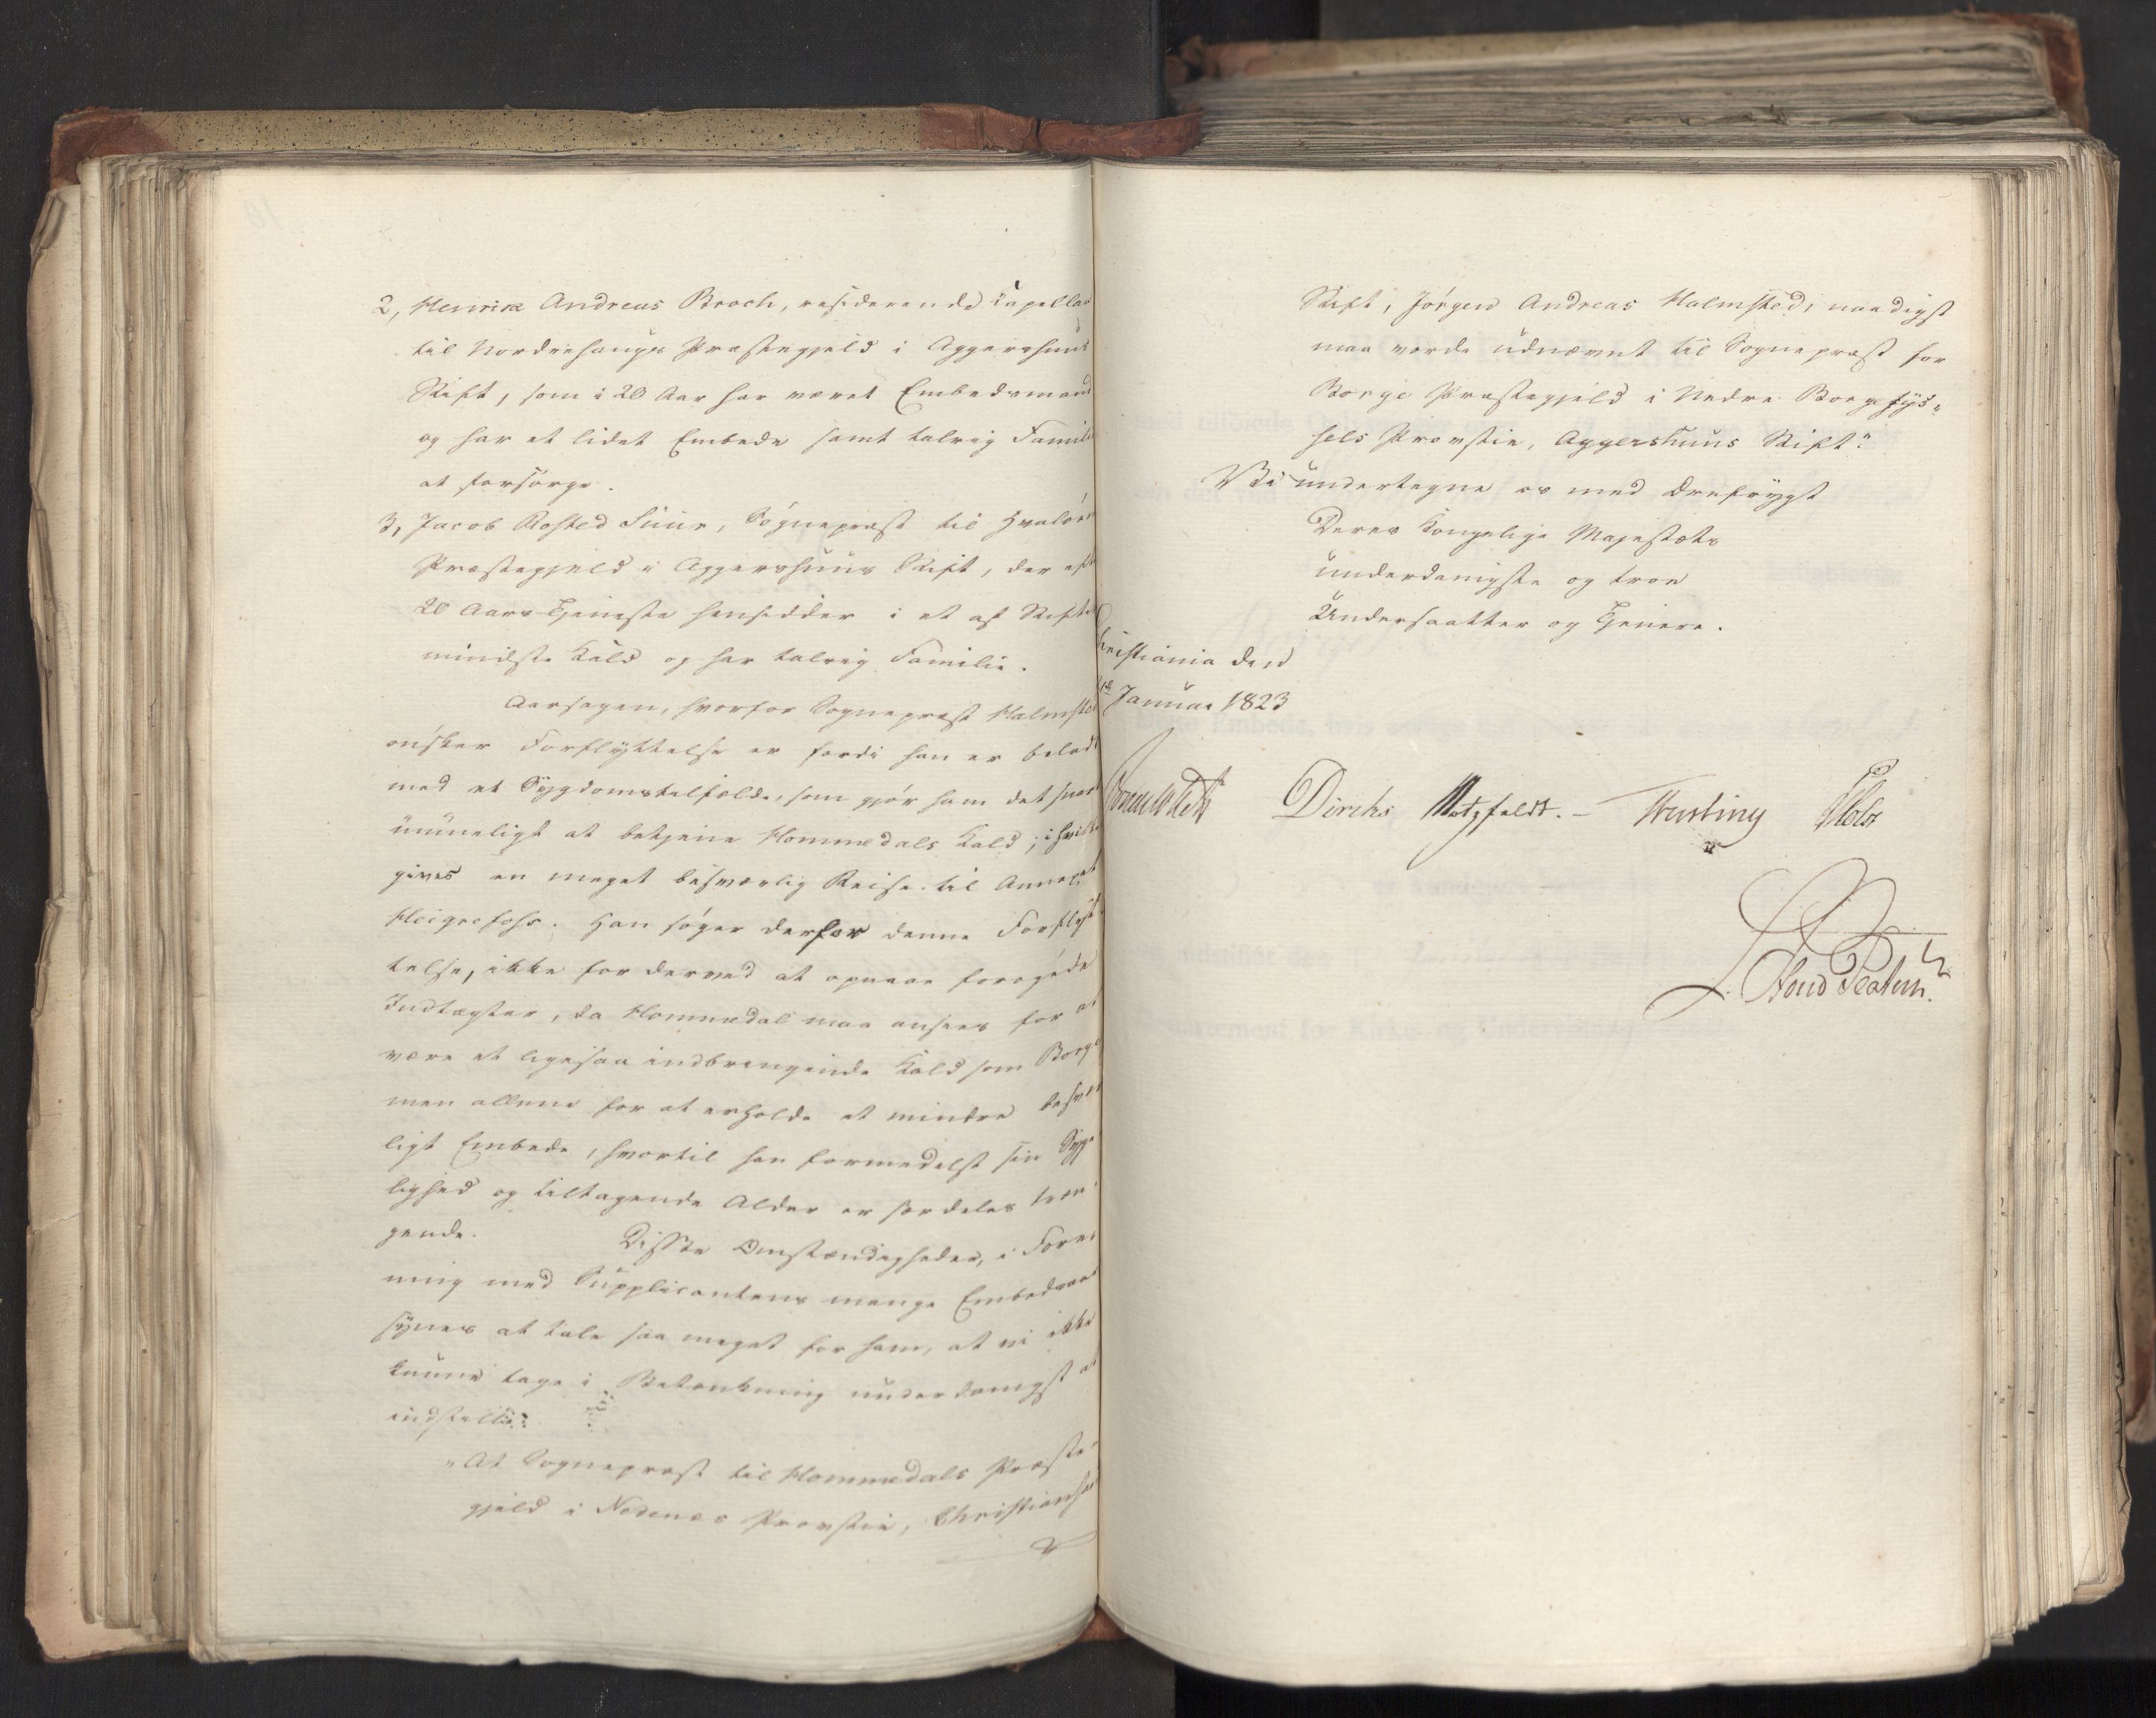 2, Henrik Andreas Broch, residerende Capellan
til Nordrehougs Præstegjeld i Aggershuus
Stift, som i 20 Aar har været Embedsmand
og har et lidet Embede samt talrig Famili
at forsørge.
3, Jacob Rosted Suur, Sognepræst til Hvaløern
Præstegjeld i Aggershuus Stift, der eft
20 Aars Tjeneste hensidder i et af Stifte
mindste Kald og har talrig Familie.
Aarsagen, hvorfor Sognepræst Halmsted
ønsker Forflyttelse er fordi han er belad
med et Sygdomstilfælde, som gjør ham det snar
umueligt at betjene Hommedals Kald; i hvilk
gives en meget besværlig Reise til Annexet
Heigrefoss. Han søger derfor denne Forflyt
telse, ikke for derved at opnaae forøgede
Indtægter, da Hommedal maa ansees for at
være et ligesaa indbringende Kald som Borge
men allene for at erholde et mindre besvær
ligt Embede, hvortil han formedelst sin Syge
lighed og tiltagende Alder er særdeles træn
gende. Disse Omstændigheder, i Fore
ning med Supplicantens mange Embedsaar
synes at tale saa meget for ham, at vi ikke
kunne tage i Betænkning underdanigst at
indstille:
"At Sognepræst til Hommedals Præste
gjeld i Nedenes Provstie, Christiansa
Stift, Jørgen Andreas Halmsted, naadigst
maa vorde udnævnt til Sognepræst for
Borge Præstegjeld i Nedre Borgesys„
sels Provstie, Aggershuus Stift."
Vi undertegne os med Ærefrygt
Deres Kongelige Majestæts
underdanigste og troe
Undersaatter og Tjenere.
Christiania den
Januar 1823
Diriks Motzfeldt. Treschow Holst